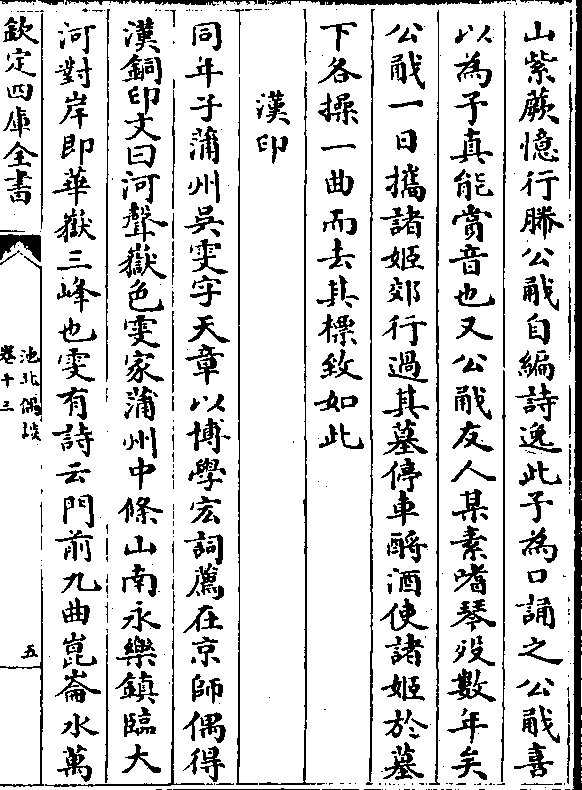 山紫蕨憶行勝公㦷自編詩逸此予為口誦之公㦷喜
以為予真能賞音也又公㦷友人某素嗜琴歿數年矣
公㦷一日攜諸姬郊行過其墓停車酹酒使諸姬於墓
下各操一曲而去其標致如此
漢印
同年子蒲州吳雯字天章以博學宏詞薦在京師偶得
漢銅印文曰河聲嶽色雯家蒲州中條山南永樂鎮臨大
河對岸即華嶽三峰也雯有詩云門前九曲崑崙水萬
欽定四庫全書
池北偶談
卷十三
五